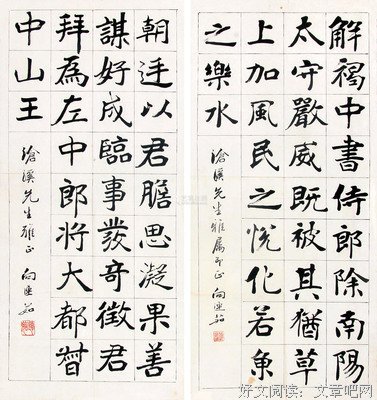 解褐中書侍郎除南陽
太守嚴威既被其猶草
上加風民之悅化若魚
之樂水
滄溟先生雅屬即正 向燊
朝廷以君膽思凝果善
謀好成臨事發奇徵君
拜爲左中郎將大都督
中山王
滄溟先生雅正 向燊
好文阅读: 文章吧网